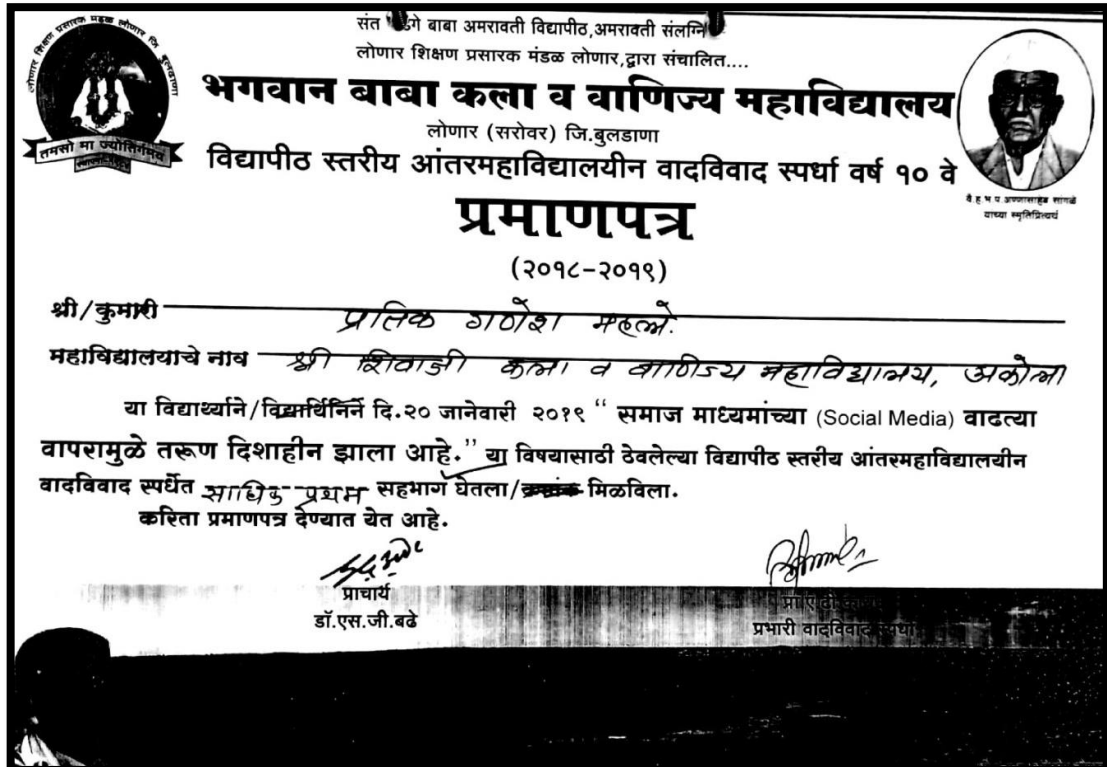 लोणार शिक्षण प्रसारक मंडळ लोणार जि बुलडाणा
तमसो मा ज्योतिर्गमय
संत गाडगे बाबा अमरावती विद्यापीठ,अमरावती संलग्नि
लोणार शिक्षण प्रसारक मंडळ लोणार,द्वारा संचालित....
भगवान बाबा कला व वाणिज्य महाविद्यालय
लोणार (सरोवर) जि.बुलडाणा
विद्यापीठ स्तरीय आंतरमहाविद्यालयीन वादविवाद स्पर्धा वर्ष १० वे
वै.ह.भ.प.अण्णासाहेब सांगळे
याच्या स्मृतिप्रित्यर्थ
प्रमाणपत्र
(२०१८-२०१९)
श्री/कुमारी प्रतिक गणेश म्हल्ले.
महाविद्यालयाचे नाव श्री शिवाजी कला व वाणिज्य महाविद्यालय, अकोला
या विद्यार्थ्याने/विद्यार्थिनिने दि.२० जानेवारी २०१९ “ समाज माध्यमांच्या (Social Media) वाढत्या
वापरामुळे तरूण दिशाहीन झाला आहे.” या विषयासाठी ठेवलेल्या विद्यापीठ स्तरीय आंतरमहाविद्यालयीन
वादविवाद स्पर्धेत सांघिक प्रथम सहभाग घेतला/क्रमांक मिळविला.
करिता प्रमाणपत्र देण्यात येत आहे.
प्राचार्य
डॉ.एस.जी.बढे
प्रभारी वादविवाद स्पर्धा